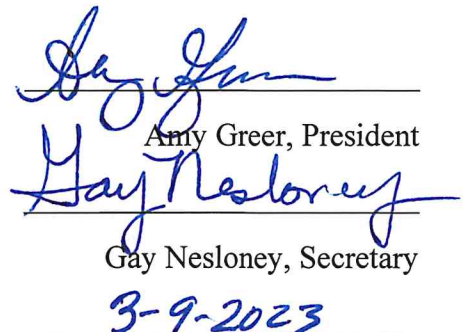 Amy Greer
Amy Greer, President
Gay Nesloney
Gay Nesloney, Secretary
3-9-2023